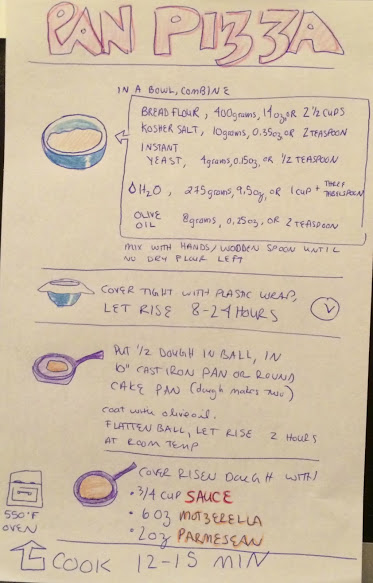 PAN PIZZA
IN A BOWL, COMBINE
BREAD FLOUR, 400grams, 14oz, OR 2 1/2 CUPS
KOSHER SALT, 10grams, 0.35oz, OR 2 TEASPOON
INSTANT
YEAST, 4grams, 0.15oz, OR 1/2 TEASPOON
H2O, 275grams, 9.5oz, OR 1 CUP + THREE
TABLESPOON
OLIVE
OIL 8grams, 0.25oz, OR 2 TEASPOON
MIX WITH HANDS/WOODEN SPOON UNTIL
NO DRY FLOUR LEFT
COVER TIGHT WITH PLASTIC WRAP,
LET RISE 8-24 HOURS
PUT 1/2 DOUGH IN BALL, IN
10" CAST IRON PAN OR ROUND
CAKE PAN (dough makes two)
coat with olive oil.
FLATTEN BALL, LET RISE 2 HOURS
AT ROOM TEMP
COVER RISEN DOUGH WITH
• 3/4 CUP SAUCE
• 6 OZ MOTZERELLA
• 2OZ PARMESEAN
550°F
OVEN
COOK 12-15 MIN